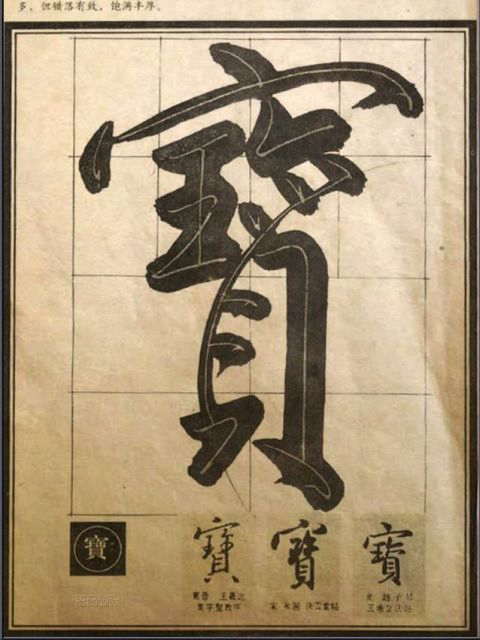 多，但错落有致，饱满丰厚。
寶
寶
寶 寶 寶
東晋 王羲之
集字聖教序
宋 米芾
元 趙子昂